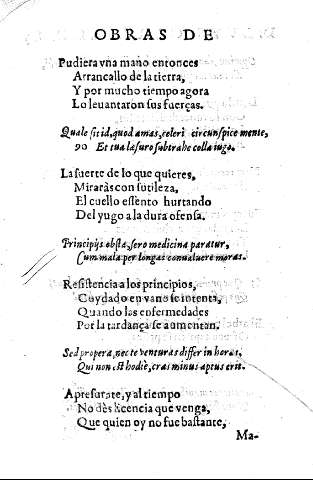 OBRAS DE
Pudiera vna mano entonces
Arrancallo de la tierra,
Y por mucho tiempo agora
Lo leuantaron sus fuerças.
Quale sit id, quod amas, celeri circunspice mente,
90 Et tua læsuro subtrahe colla iugo.
La suerte de lo que quieres,
Miraràs con sutileza,
El cuello essento hurtando
Del yugo a la dura ofensa.
Principijs obsta, sero medicina paratur,
Cum mala per longas conualuere moras.
Resistencia a los principios,
Cuydado en vano se intenta,
Quando las enfermedades
Por la tardança se aumentan.
Sed propera, nec te venturas differ in horas,
Qui non est hodiè, cras minus aptus erit.
Apresurate, y al tiempo
No dès licencia que venga,
Que quien oy no fue bastante,
Ma-